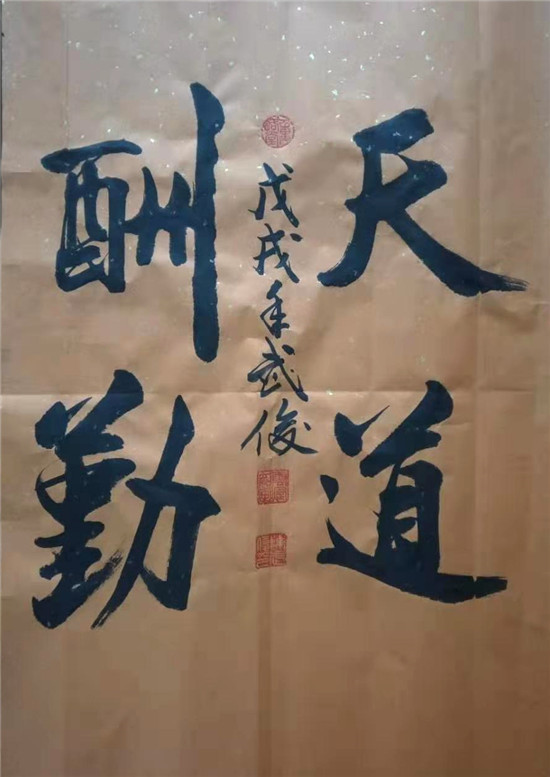 天道
酬勤
戊戌年武俊